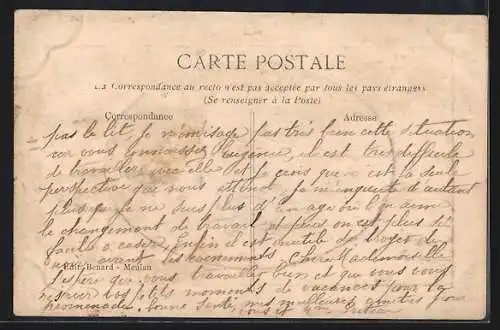 CARTE POSTALE
La Correspondance au recto n'est pas acceptée par tous les pays étrangers
(Se renseigner à la Poste)
Correspondance
Adresse
pas le lit, Je n'envisage pas très bien cette situation
car vous connaissez Eugénie, il est très difficile
de travailler avec elle et je crois que c'est la seule
perspective que nous attend, ça m'inquiète d'autant
plus que je ne suis plus d'un age où l'on aime
le changement de travail, et plus on est plus
facile à caser, enfin il est inutile de
avant les évènements. Chère Mademoiselle
Edit. Benard - Meulan
J'espère que vous travaillez bien et que vous vous
vos petits moments de vacances pour la
promenade. Bonne santé, mes meilleures amitiés pour
vous et